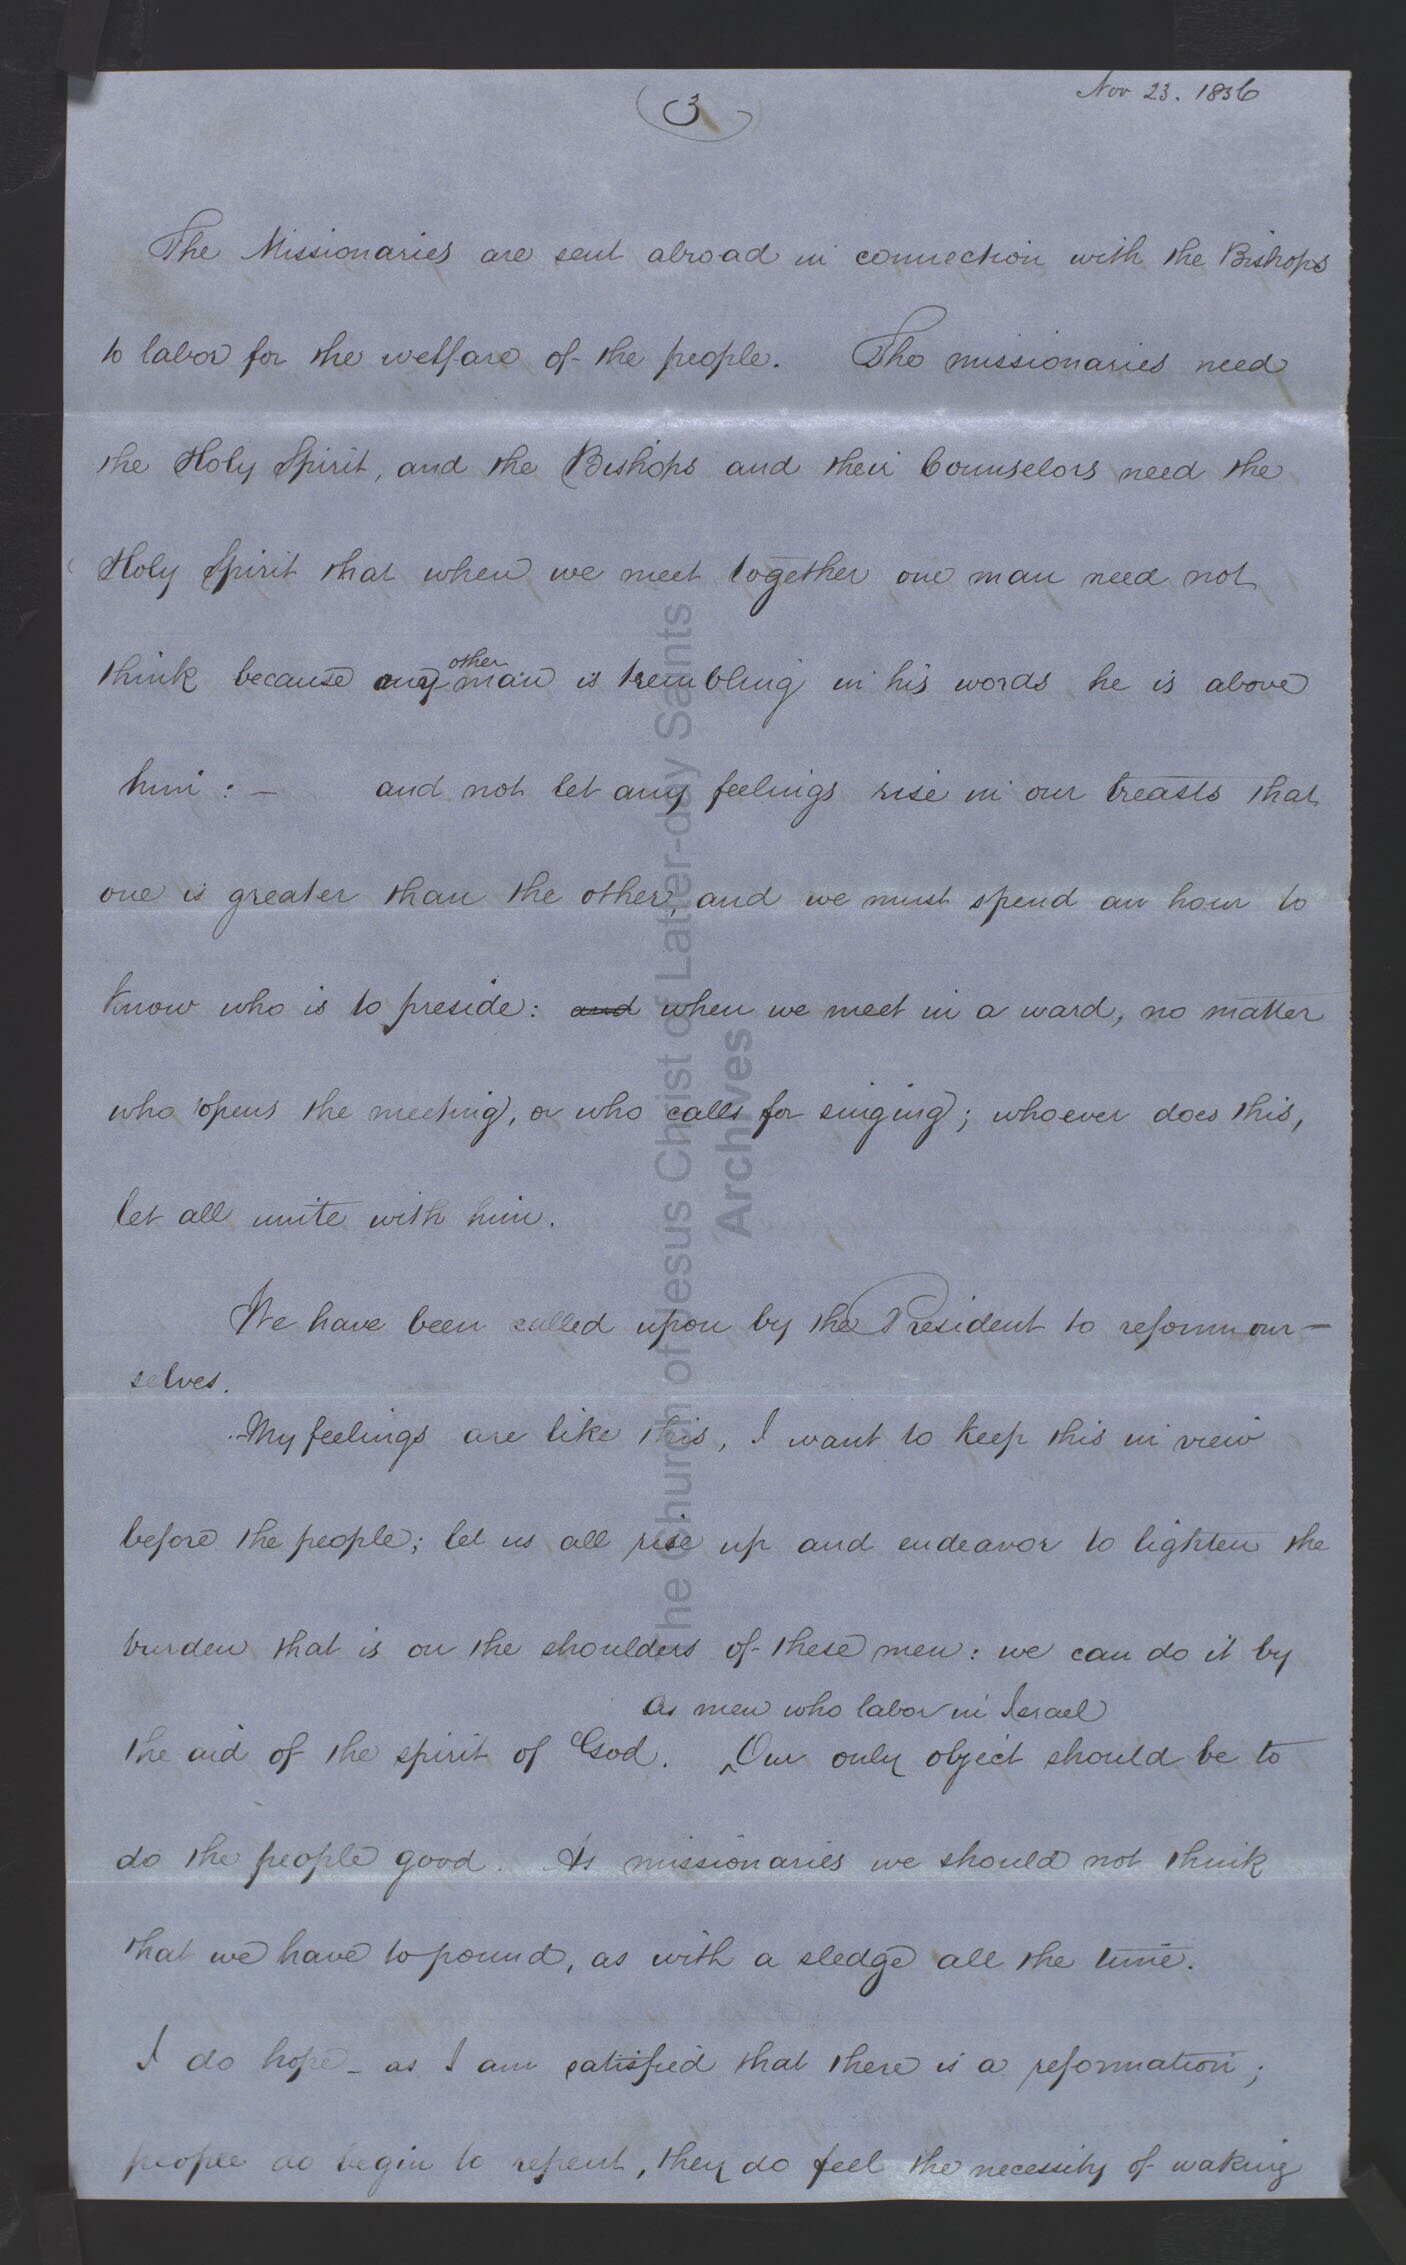 Nov 23. 1856
3
The Missionaries are sent abroad in connection with the Bishops
to labor for the welfare of the people. The missionaries need
the Holy Spirit, and the Bishops and their Counselors need the
Holy Spirit that when we meet together one man need not
other
think because any man is trembling in his words he is above
him : – and not let any feelings rise in our breasts that
one is greater than the other, and we must spend an hour to
know who is to preside: and when we meet in a ward, no matter
who opens the meeting, or who calls for singing; whoever does this,
let all unite with him.
We have been called upon by the President to reform our-
selves.
My feelings are like this, I want to keep this in view
before the people; let us all rise up and endeavor to lighten the
burden that is on the shoulders of these men: we can do it by
as men who labor in Israel
the aid of the spirit of God. ‸Our only object should be to
do the people good. As missionaries we should not think
that we have to pound, as with a sledge all the time.
I do hope – as I am satisfied that there is a reformation;
people do begin to repent, they do feel the necessity of waking
The Church of Jesus Christ of Latter-day Saints
Archives